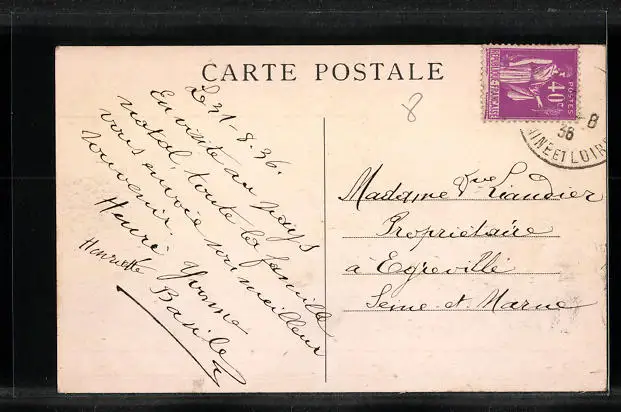 CARTE POSTALE
8
REPUBLIQUE FRANÇAISE
POSTES
40c
8
36
INE ET LOIRE
Le 21-8.36.
En visite au pays
natal, toute la famille
vous envoie son meilleur
souvenir.
Henri Yvonne
Henriette Basile
Madame Vve Liandier
Propriétaire
à Egreville
Seine-et-Marne